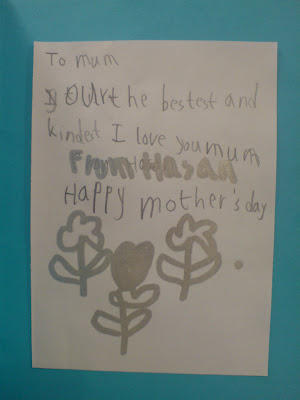 To mum
yourt he bestest and
kindest I love you mum
From Hasan
Happy mother's day